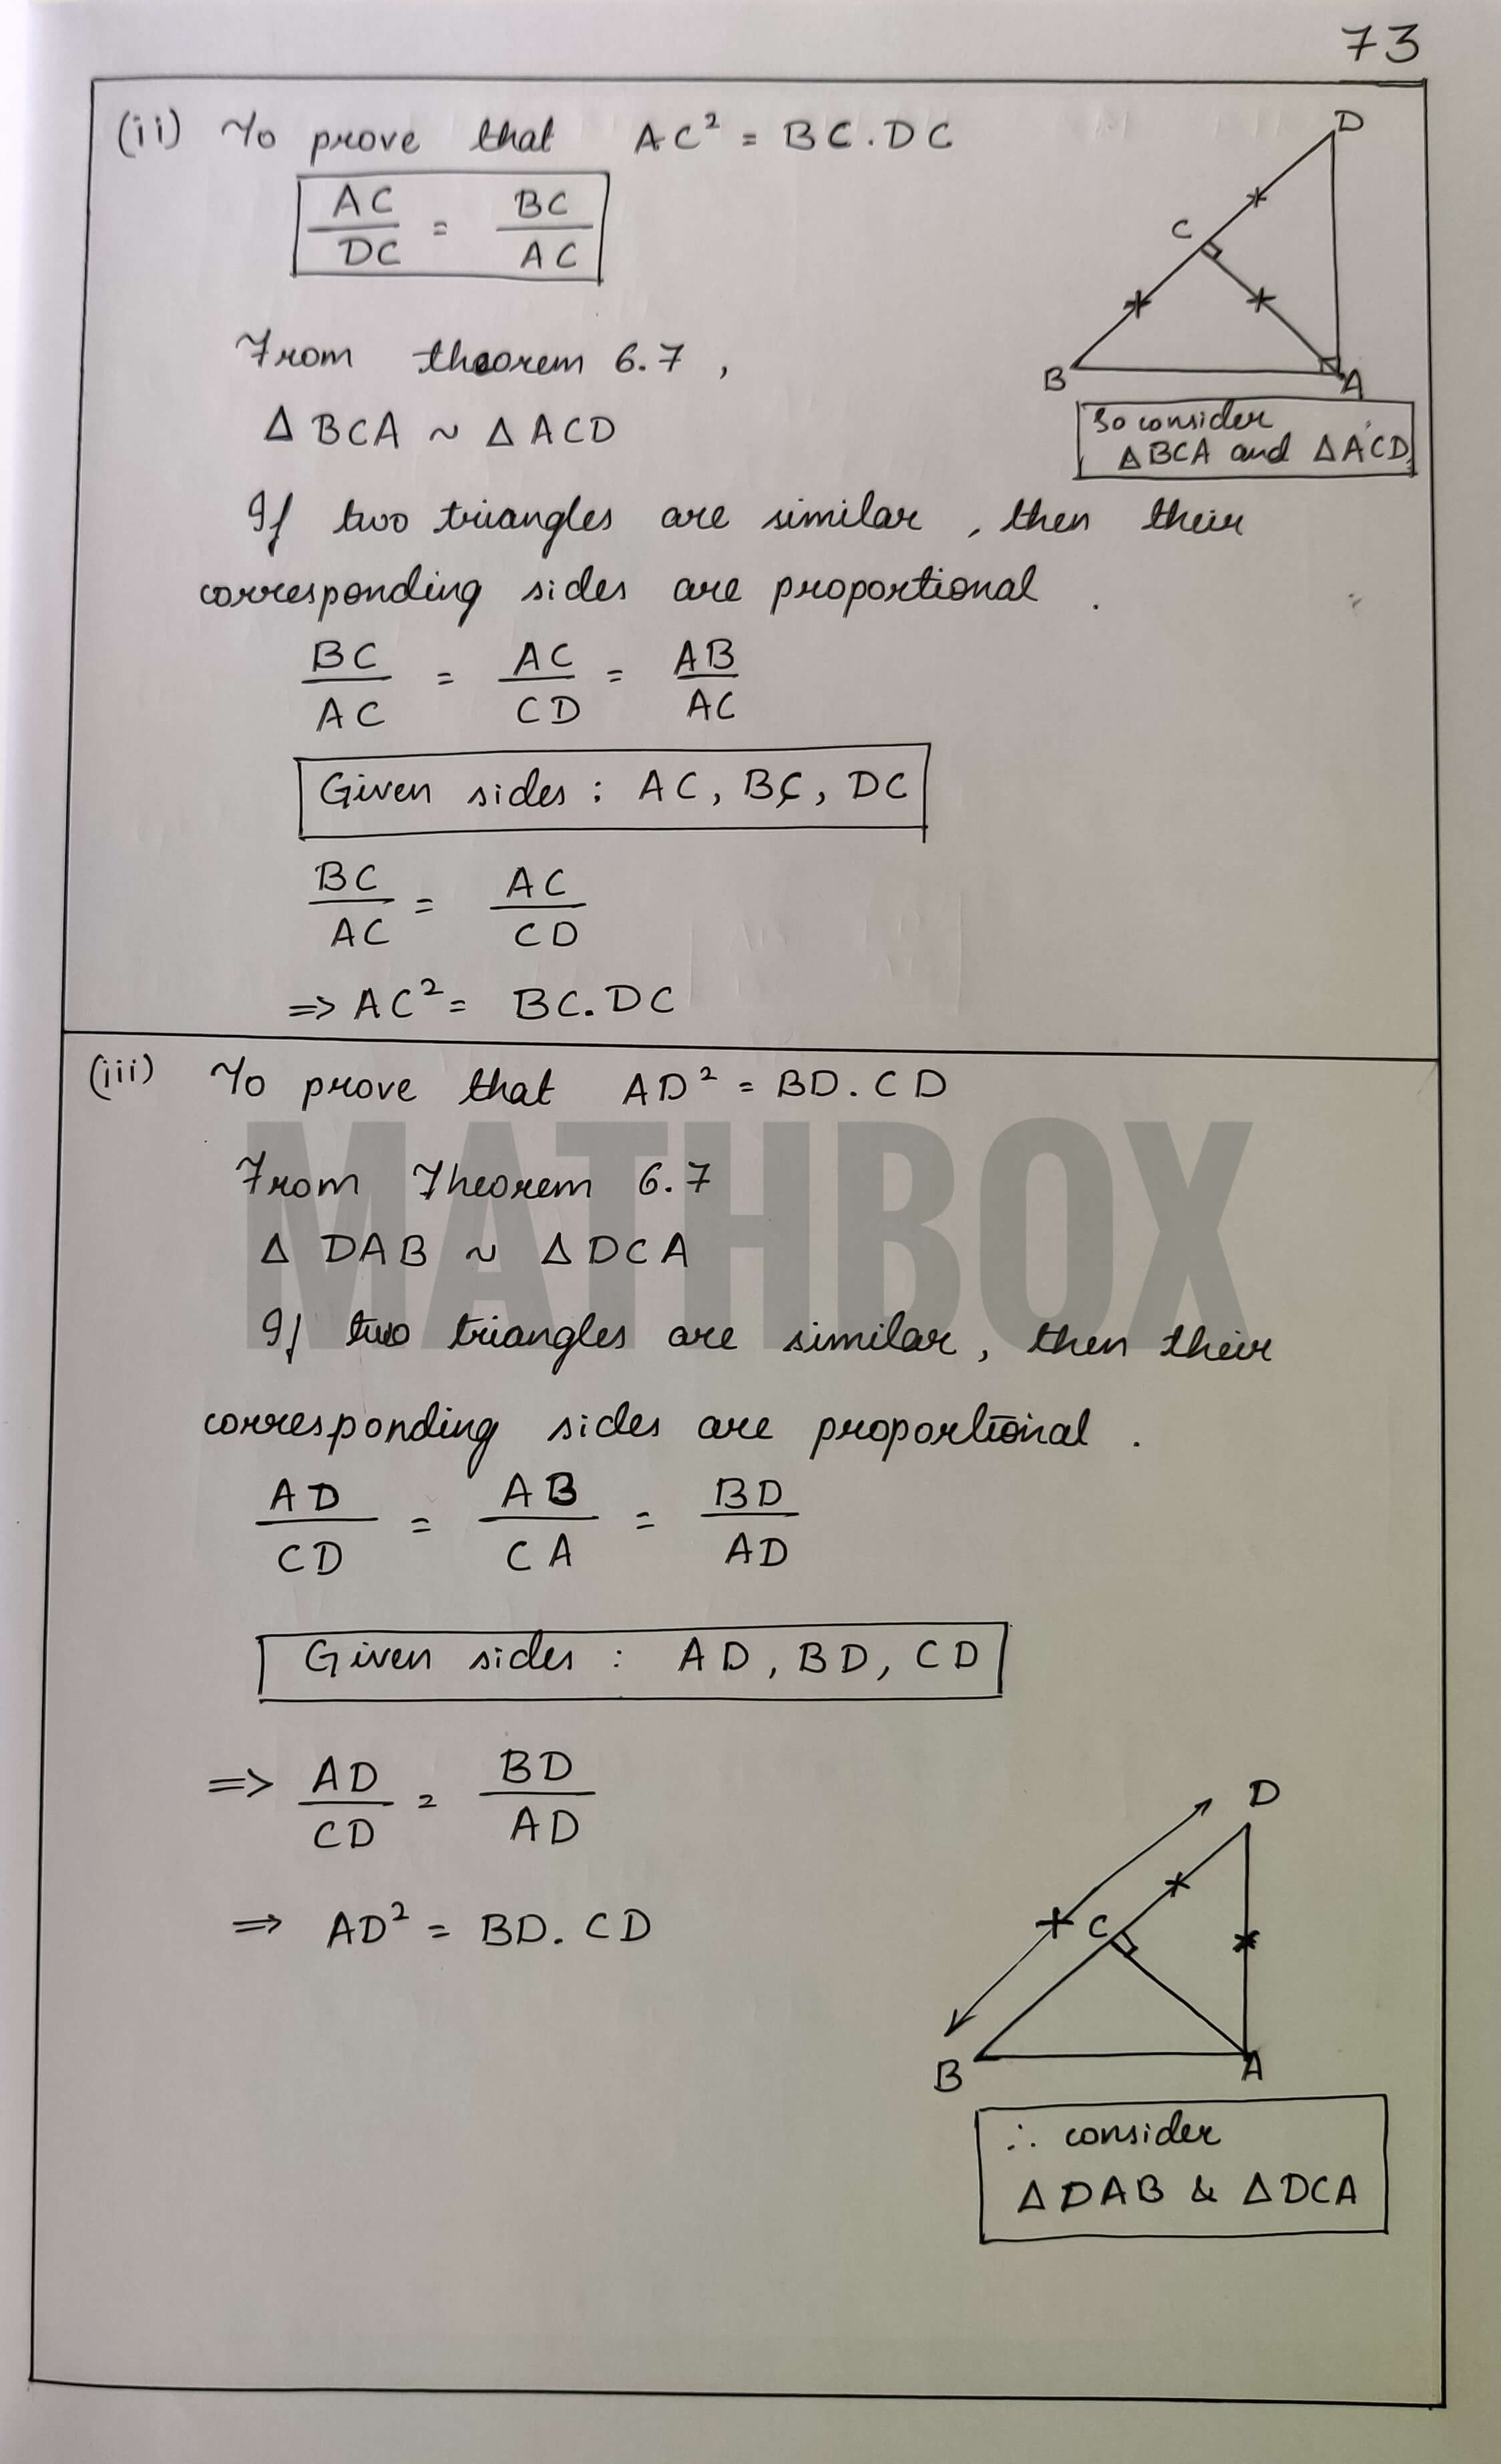 73
(ii) To prove that AC² = BC.DC
AC/DC = BC/AC
D
C
B
A
So consider
Δ BCA and Δ ACD
From theorem 6.7 ,
Δ BCA ~ Δ ACD
If two triangles are similar , then their
corresponding sides are proportional .
BC/AC = AC/CD = AB/AC
Given sides : AC, BC, DC
BC/AC = AC/CD
=> AC² = BC.DC
(iii) To prove that AD² = BD.CD
MATHBOX
From Theorem 6.7
Δ DAB ~ Δ DCA
If two triangles are similar, then their
corresponding sides are proportional .
AD/CD = AB/CA = BD/AD
Given sides : AD, BD, CD
=> AD/CD = BD/AD
=> AD² = BD.CD
D
C
B
A
∴ consider
Δ DAB & Δ DCA